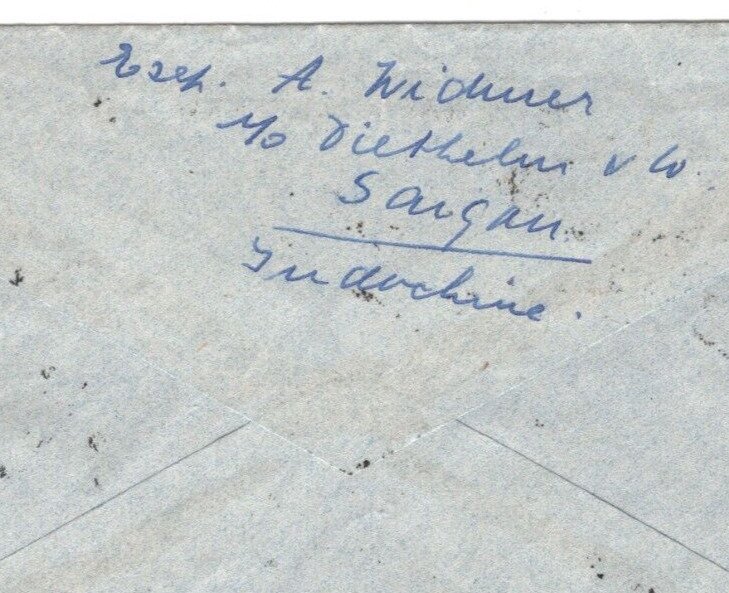 Exp. A. Widmer
c/o Diethelm & Co.
Saigon
Indochine.